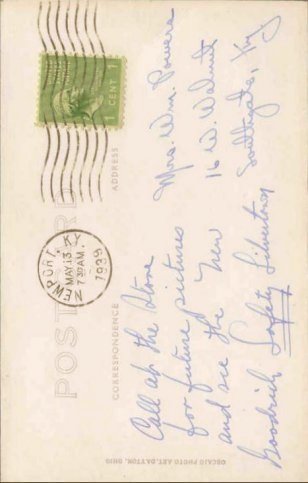 POST CARD
CORRESPONDENCE
ADDRESS
1 CENT 1
NEWPORT, KY.
MAY 13
7 30 AM.
1939
Call at the Store
for future pictures
and see the New
Goodrich Safety Silvertown
Mrs. Wm. Powers
16 W. Walnut
Southgate, Ky
ORCAJO PHOTO ART, DAYTON, OHIO